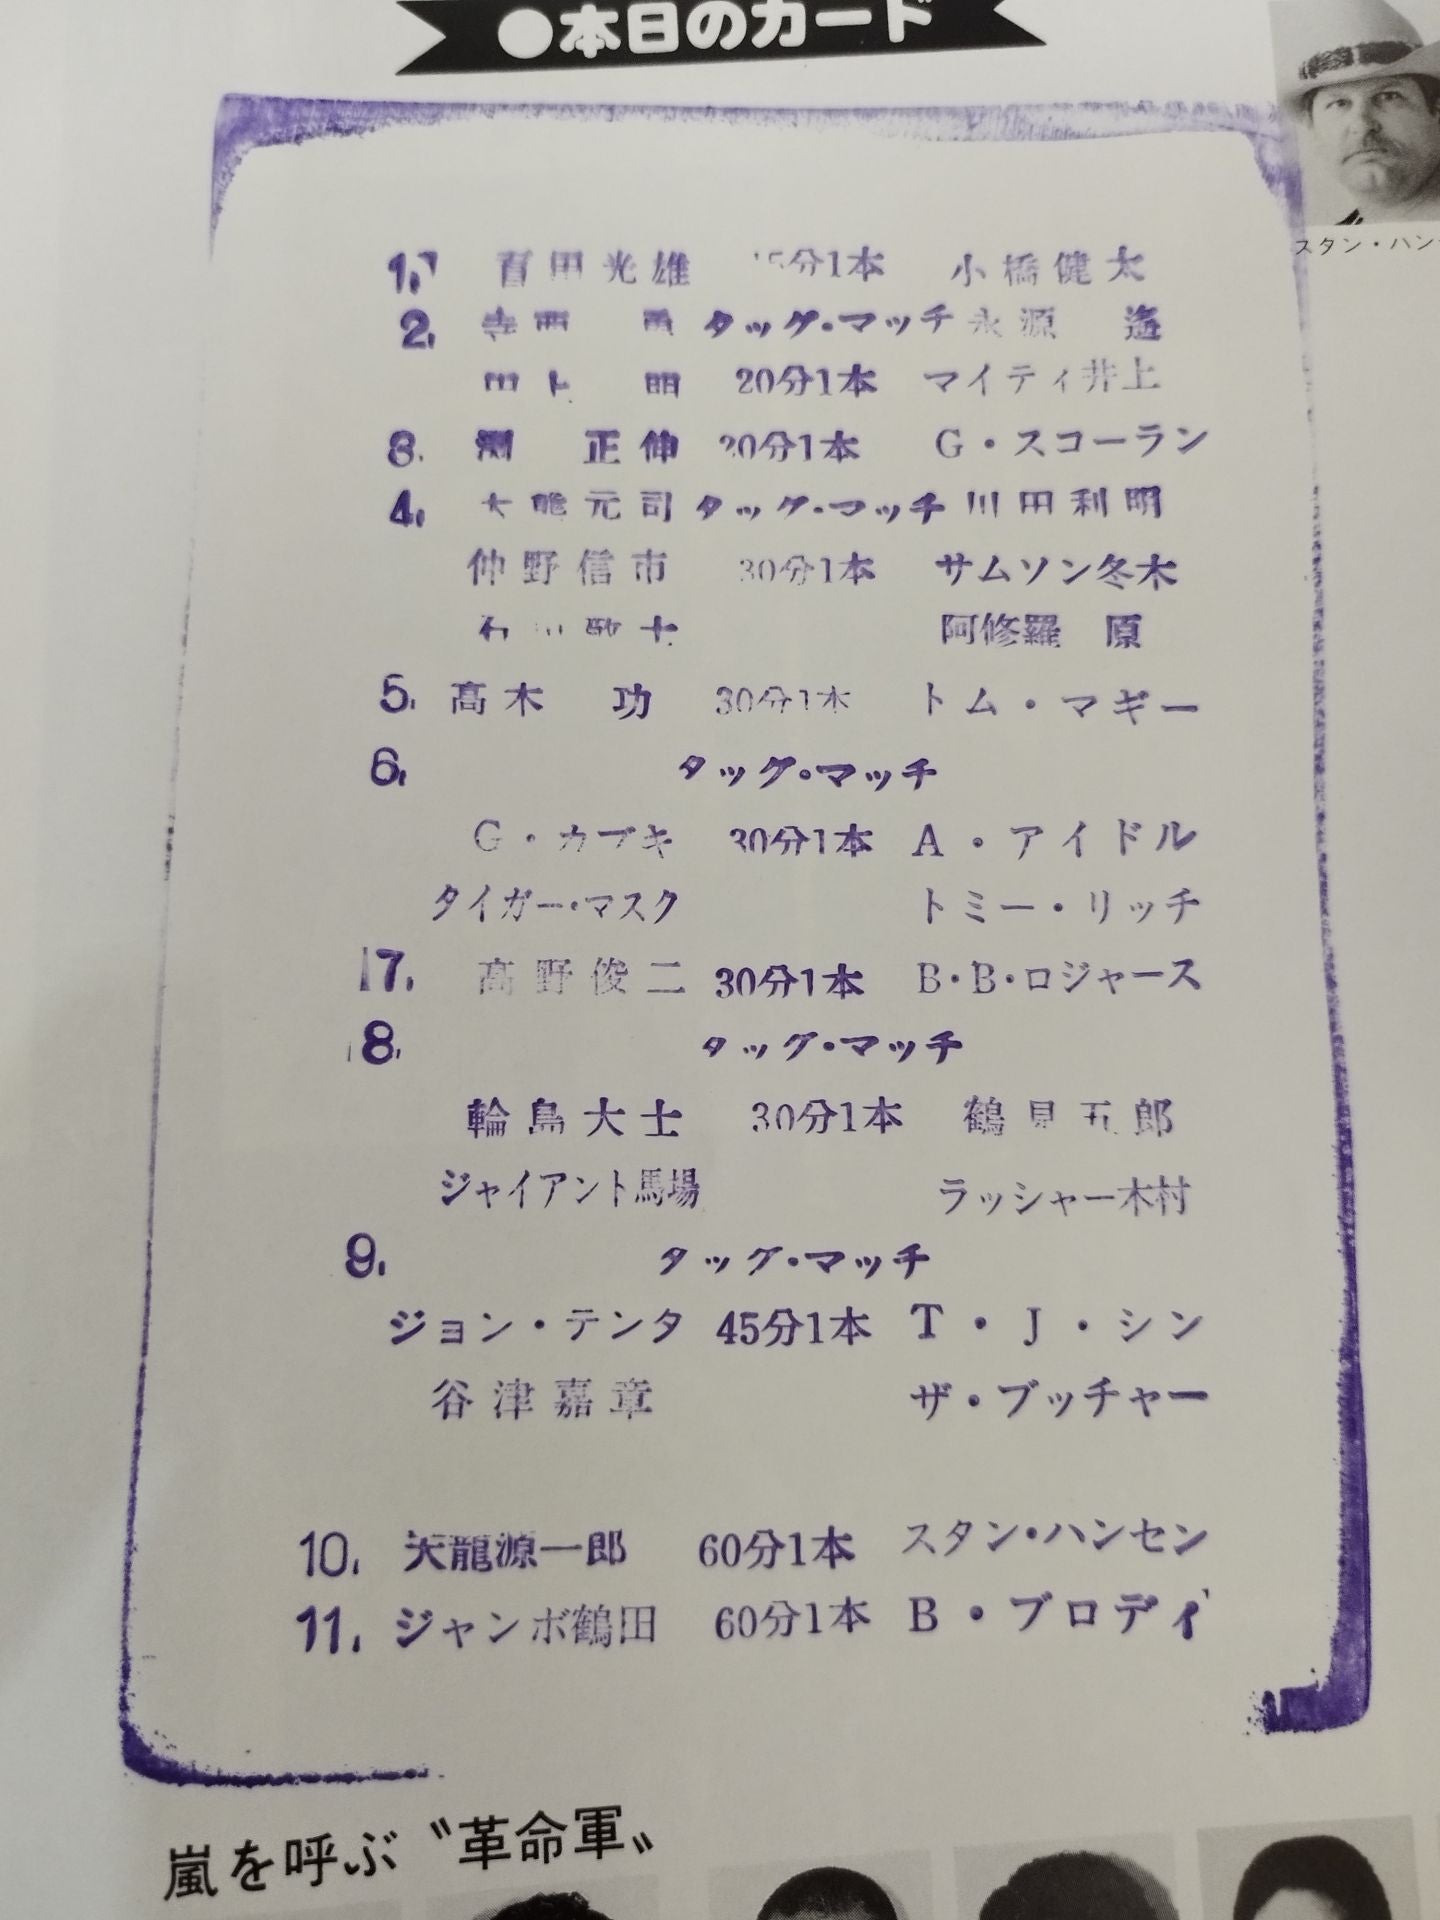 ●本日のカード
スタン・ハン
1. 百田光雄 15分1本 小橋健太
2. 寺西 勇 タッグ・マッチ 永源 遙
20分1本 マイティ井上
3. 渕 正伸 20分1本 G・スコーラン
4. 大熊元司 タッグ・マッチ 川田利明
仲野信市 30分1本 サムソン冬木
石川敬士 阿修羅 原
5. 高木 功 30分1本 トム・マギー
6. タッグ・マッチ
G・カブキ 30分1本 A・アイドル
タイガー・マスク トミー・リッチ
7. 高野俊二 30分1本 B・B・ロジャース
8. タッグ・マッチ
輪島大士 30分1本 鶴見五郎
ジャイアント馬場 ラッシャー木村
9. タッグ・マッチ
ジョン・テンタ 45分1本 T・J・シン
谷津嘉章 ザ・ブッチャー
10. 天龍源一郎 60分1本 スタン・ハンセン
11. ジャンボ鶴田 60分1本 B・ブロディ
嵐を呼ぶ〝革命軍〟